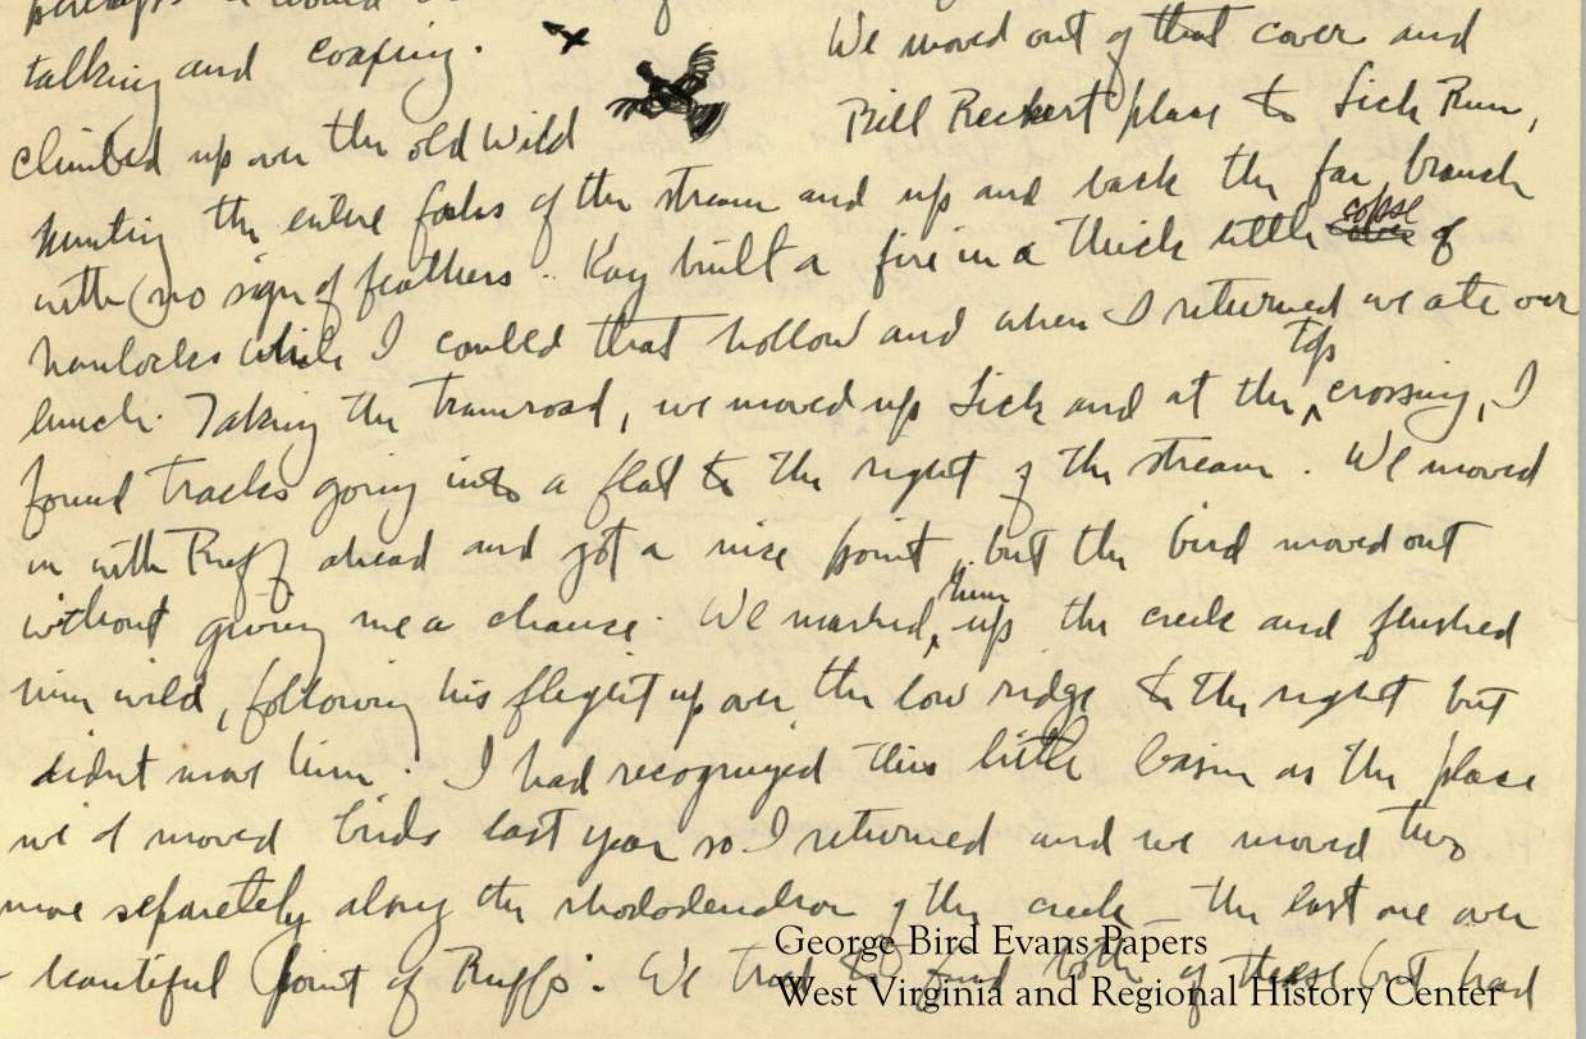 perhaps
talking and coaxing.
We moved out of that cover and
climbed up over the old Wild Bill Reckert place to Lick Run,
hunting the entire forks of the stream and up and back the far branch
with no sign of feathers. Kay built a fire in a thick little copse of
hemlocks while I combed that hollow and when I returned we ate our
lunch. Taking the tramroad, we moved up Lick and at the top crossing, I
found tracks going into a flat to the right of the stream. We moved
in with Ruff ahead and got a nice point, but the bird moved out
without giving me a chance. We marked him up the creek and flushed
him wild, following his flight up over the low ridge to the right but
didnt move him. I had recognized this little basin as the place
we'd moved birds last year so I returned and we moved two
more separetely along the rhododendron of the creek – the last one over
beautiful point of Ruff's. We tried to find both of these but had
George Bird Evans Papers
West Virginia and Regional History Center